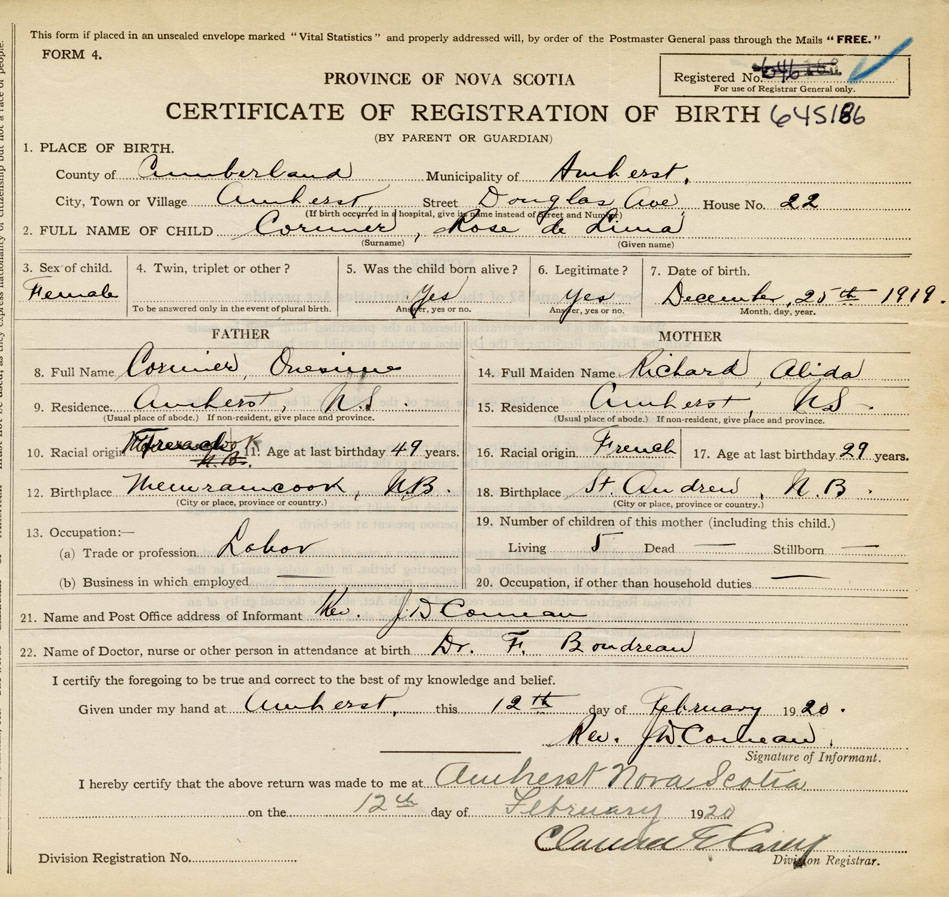 This form if placed in an unsealed envelope marked "Vital Statistics" and properly addressed will, by order of the Postmaster General pass through the Mails "FREE."
FORM 4.
PROVINCE OF NOVA SCOTIA
Registered No.
For use of Registrar General only.
CERTIFICATE OF REGISTRATION OF BIRTH 645186
(BY PARENT OR GUARDIAN)
1. PLACE OF BIRTH.
County of Cumberland Municipality of Amherst,
City, Town or Village Amherst, Street Douglas Ave, House No. 22
(If birth occurred in a hospital, give its name instead of Street and Number)
2. FULL NAME OF CHILD Cormier, Rose de Lima
(Surname) (Given name)
3. Sex of child. 4. Twin, triplet or other? 5. Was the child born alive? 6. Legitimate? 7. Date of birth.
Female Yes Yes December, 25th 1919.
To be answered only in the event of plural birth. Answer, yes or no. Answer, yes or no. Month, day, year.
FATHER MOTHER
8. Full Name Cormier, Onesime 14. Full Maiden Name Richard, Alida
9. Residence. Amherst, N.S. 15. Residence. Amherst, NS
(Usual place of abode.) If non-resident, give place and province. (Usual place of abode.) If non-resident, give place and province.
10. Racial origin French 11. Age at last birthday 49 years. 16. Racial origin. French 17. Age at last birthday 29 years.
12. Birthplace Memramcook, N.B. 18. Birthplace St. Andrew, N.B.
(City or place, province or country.) (City or place, province or country.)
13. Occupation:— 19. Number of children of this mother (including this child.)
(a) Trade or profession Labor Living 5 Dead — Stillborn —
(b) Business in which employed — 20. Occupation, if other than household duties. —
21. Name and Post Office address of Informant Rev. J D Comeau
22. Name of Doctor, nurse or other person in attendance at birth Dr. F. Boudreau
I certify the foregoing to be true and correct to the best of my knowledge and belief.
Given under my hand at Amherst, this 12th day of February 1920.
Rev. J D Comeau,
Signature of Informant.
I hereby certify that the above return was made to me at Amherst Nova Scotia
on the 12th day of February 1920
Division Registration No. Division Registrar.